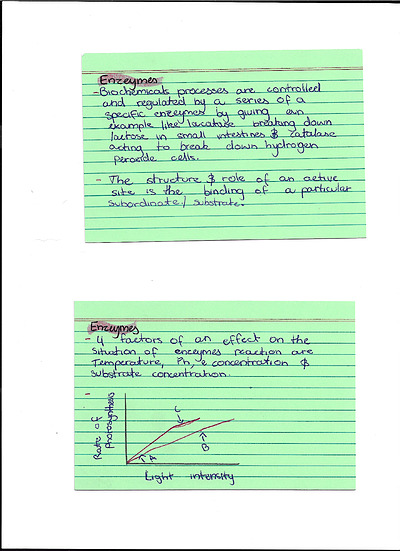 Enzeymes
- Biochemicals processes are controlled
and regulated by a series of a
specific enzeymes by giving an
example like lacatase breaking down
lactose in small intestines & catalase
acting to break down hydrogen
peroxide cells.
- The structure & role of an active
site is the binding of a particular
subordinate / substrate.
Enzeymes
- 4 factors of an effect on the
situation of enzeymes reaction are
Temperature, Ph, e concentration &
substrate concentration.
-
Rate of
Photosynthesis
C
A
B
Light intensity